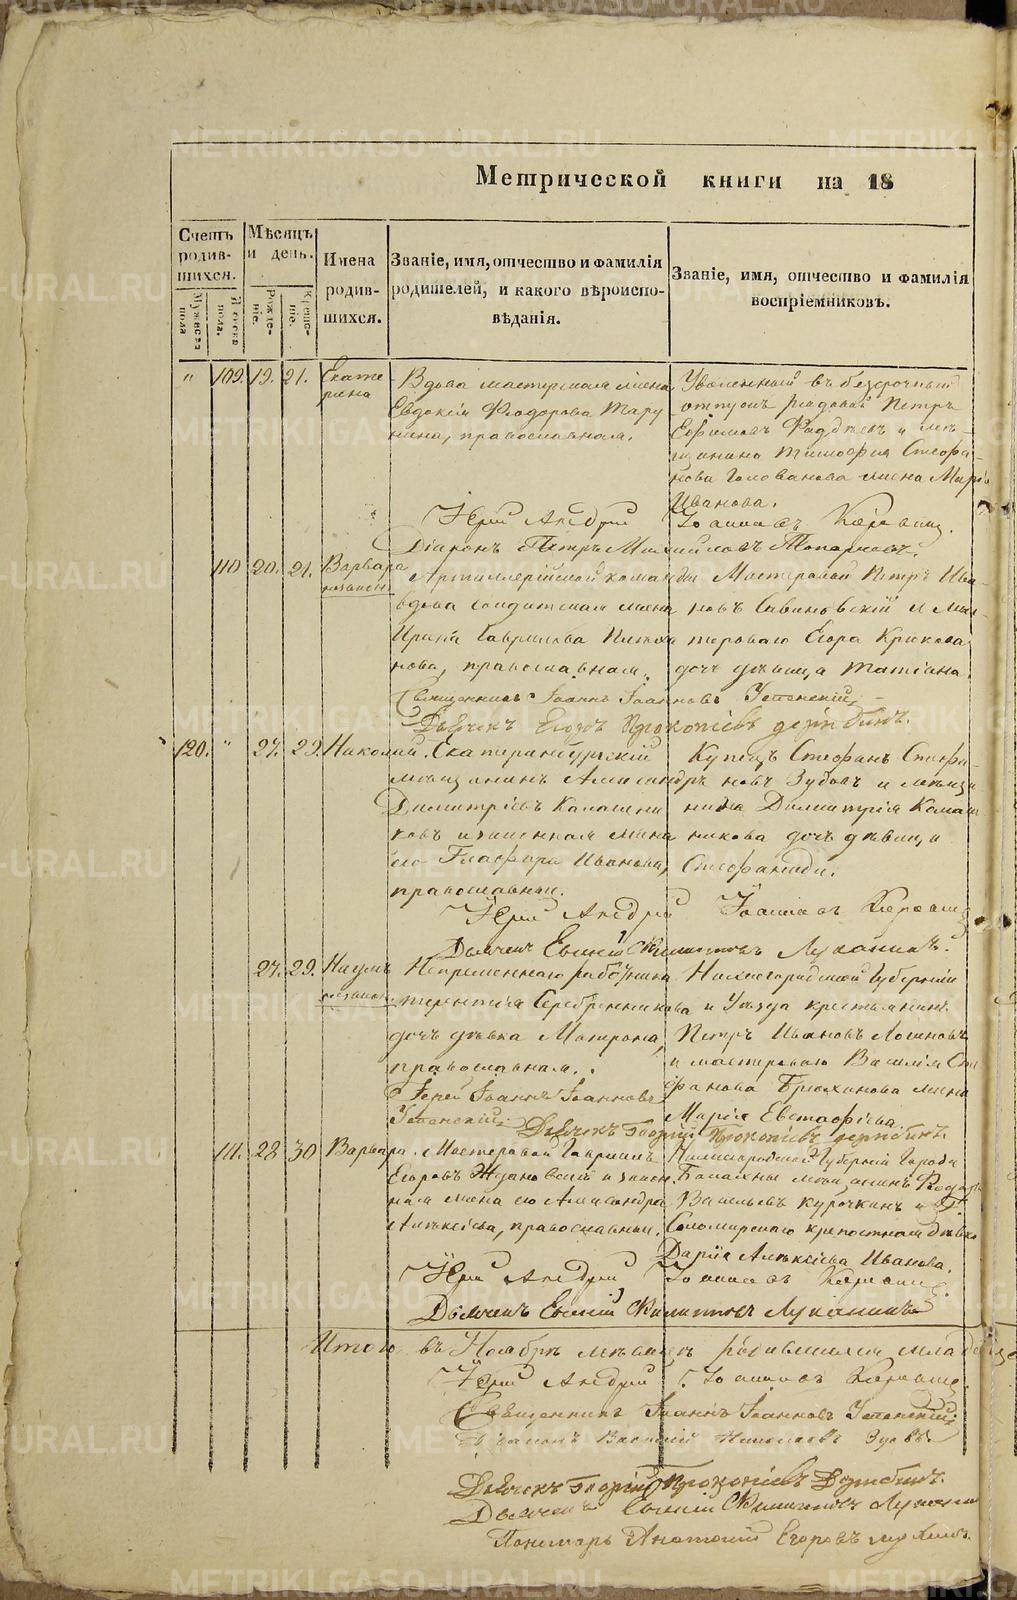 Метрической книги на 18
Счетъ родив- шихся.
Мѣсяцъ и день.
Имена родив- шихся.
Званіе, имя, отчество и фамилія родителей, и какого вѣроиспо- вѣданія.
Званіе, имя, отчество и фамилія воспріемниковъ.
Мужеска пола
Женска пола.
Рожде- ніе.
Креще- ніе.
" 109. 19. 21. Екате
рина
Вдова мастерская жена
Евдокія Ѳеодорова
православная.
Уволенный въ безсрочный
отпускъ рядовой Петръ
Ефимовъ и мѣ-
щанина Тимофея Стефа-
нова Голованова жена Марія
Иванова.
Іерей Андрей Іоанновъ
Діаконъ Петръ Михайловъ Топорковъ.
110 20. 21. Варвара
незакон.
Артиллерійской команды
вдова солдатская жена
Ирина Гаврилова
нова, православная.
Мастеровой Петръ Ива-
новъ Савиновскій и мас-
тероваго Егора Крюкова
дочь дѣвица Татіана.
Священникъ Іоаннъ Іоанновъ Успенскій
Дьячекъ Егоръ Прокопіевъ Дерябинъ.
120. " 27. 29. Николай.
Екатеринбургскій
мѣщанинъ Александръ
Димитріевъ Калашни
ковъ и законная жена
его Глафира Иванова,
православные.
Купецъ Стефанъ Стефа-
новъ Зубовъ и мѣщан
нина Димитрія Калаш
никова дочь дѣвица
Стефанида.
Іерей Андрей Іоанновъ
Дьячекъ Евгеній Филиповъ Луканинъ.
27. 29. Наумъ
незакон.
Непременнаго работника
Терентія Серебренникова
дочь дѣвка Матрона,
православная.
Нижегородской Губерніи
и Уѣзда крестьянинъ
Петръ Ивановъ Логиновъ
и мастероваго Василія Сте
фанова Брюханова жена
Марія Евстафіева.
Іерей Іоаннъ Іоанновъ
Успенскій. Дьячекъ Георгій Прокопіевъ Дерябинъ.
111. 28 30 Варвара.
Мастеровой Гавріилъ
Егоровъ Ждановскій и закон
ная жена его Александра
Алексѣева, православные.
Нижегородской Губерніи Города
Балахны мѣщанинъ Ѳедоръ
Васильевъ Курочкинъ и Г.
Соломирскаго крепостная дѣвка
Дарія Алексѣева Иванова.
Іерей Андрей Іоанновъ
Дьячекъ Евгеній Филиповъ Луканинъ
Итого въ Ноябрѣ мѣсяцѣ родившихся младенце
Іерей Андрей Іоанновъ
Священникъ Іоаннъ Іоанновъ Успенскій
Діаконъ Василій Николаевъ
Дьячекъ Георгій Прокопіевъ Дерябинъ.
Дьячекъ Евгеній Филиповъ Луканин
Пономарь Анатолій Егоровъ
METRIKI.GASO-URAL.RU